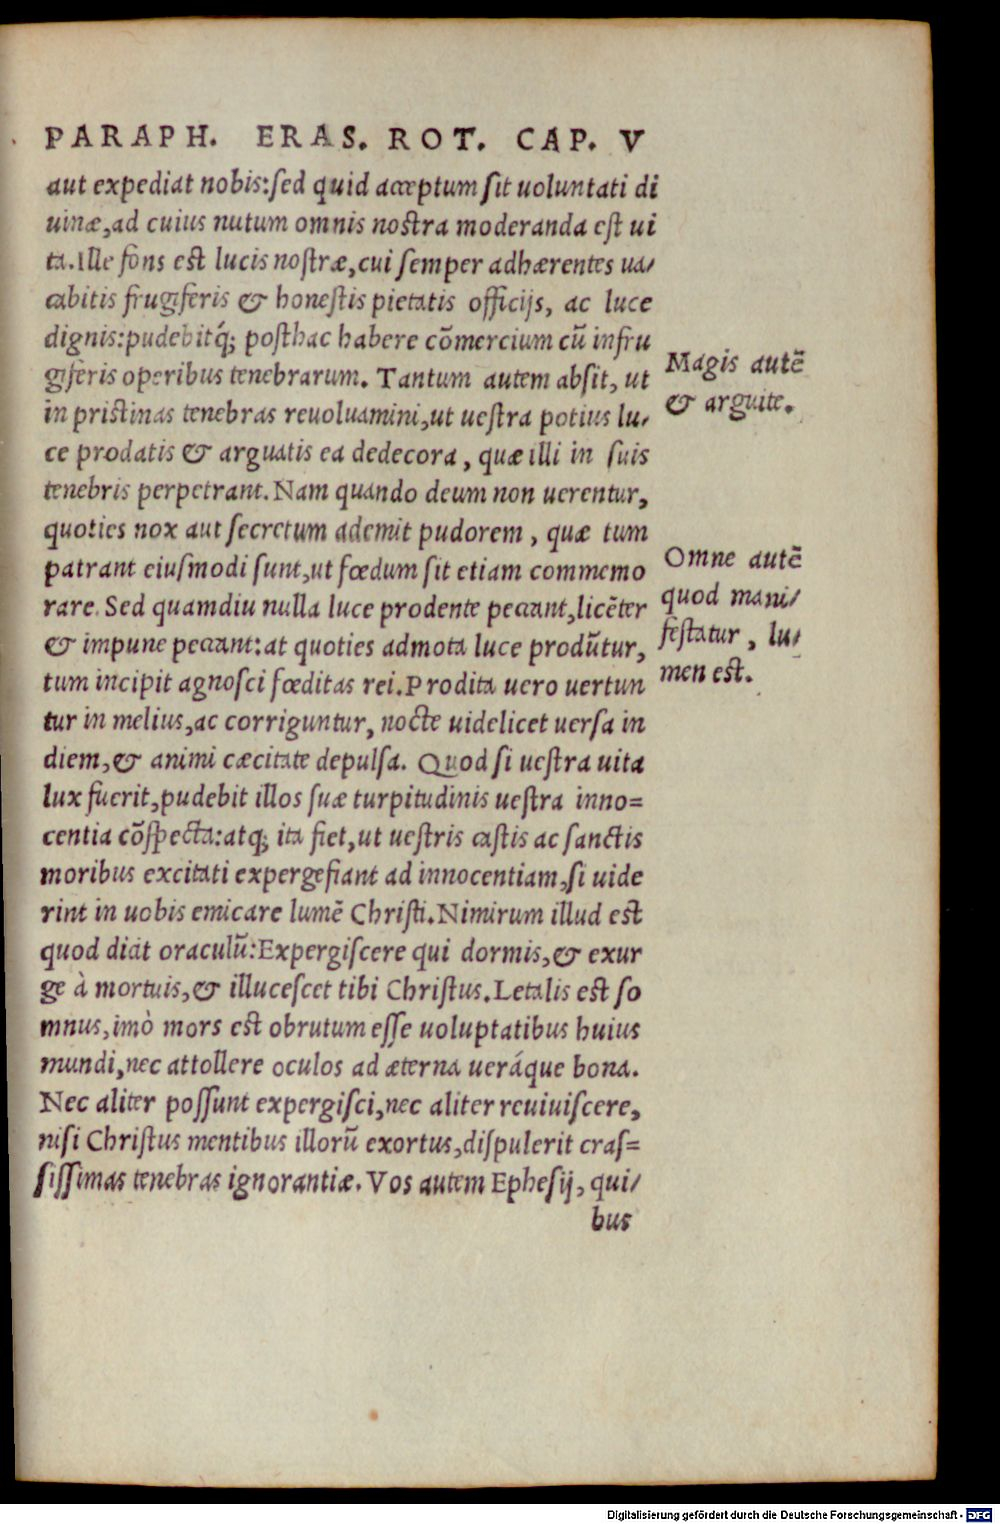 PARAPH. ERAS. ROT. CAP. V
aut expediat nobis:sed quid acceptum sit uoluntati di
uinæ,ad cuius nutum omnis nostra moderanda est ui
ta.Ille fons est lucis nostræ,cui semper adhærentes ua/
cabitis frugiferis & honestis pietatis officijs, ac luce
dignis:pudebitq́; posthac habere cōmercium cū infru
giferis operibus tenebrarum. Tantum autem absit, ut
in pristinas tenebras reuoluamini,ut uestra potius lu/
ce prodatis & arguatis ea dedecora, quæ illi in suis
tenebris perpetrant. Nam quando deum non uerentur,
quoties nox aut secretum ademit pudorem, quæ tum
patrant eiusmodi sunt,ut fœdum sit etiam commemo
rare. Sed quamdiu nulla luce prodente peccant,licēter
& impune peccant:at quoties admota luce produntur,
tum incipit agnosci fœditas rei.Prodita uero uertun
tur in melius,ac corriguntur, nocte uidelicet uersa in
diem,& animi cæcitate depulsa. Quod si uestra uita
lux fuerit,pudebit illos suæ turpitudinis uestra inno=
centia cōspecta:atq; ita fiet,ut uestris castis ac sanctis
moribus excitati expergefiant ad innocentiam,si uide
rint in uobis emicare lumē Christi.Nimirum illud est
quod dicit oraculū:Expergiscere qui dormis,& exur
ge à mortuis,& illucescet tibi Christus.Letalis est so
mnus,imò mors est obrutum esse uoluptatibus huius
mundi,nec attollere oculos ad æterna ueráque bona.
Nec aliter possunt expergisci,nec aliter reuiuiscere,
nisi Christus mentibus illorū exortus,dispulerit cras=
sissimas tenebras ignorantiæ. Vos autem Ephesij, qui/
bus
Magis autē
& arguite.
Omne autē
quod mani/
festatur, lu/
men est.
Digitalisierung gefördert durch die Deutsche Forschungsgemeinschaft - DFG